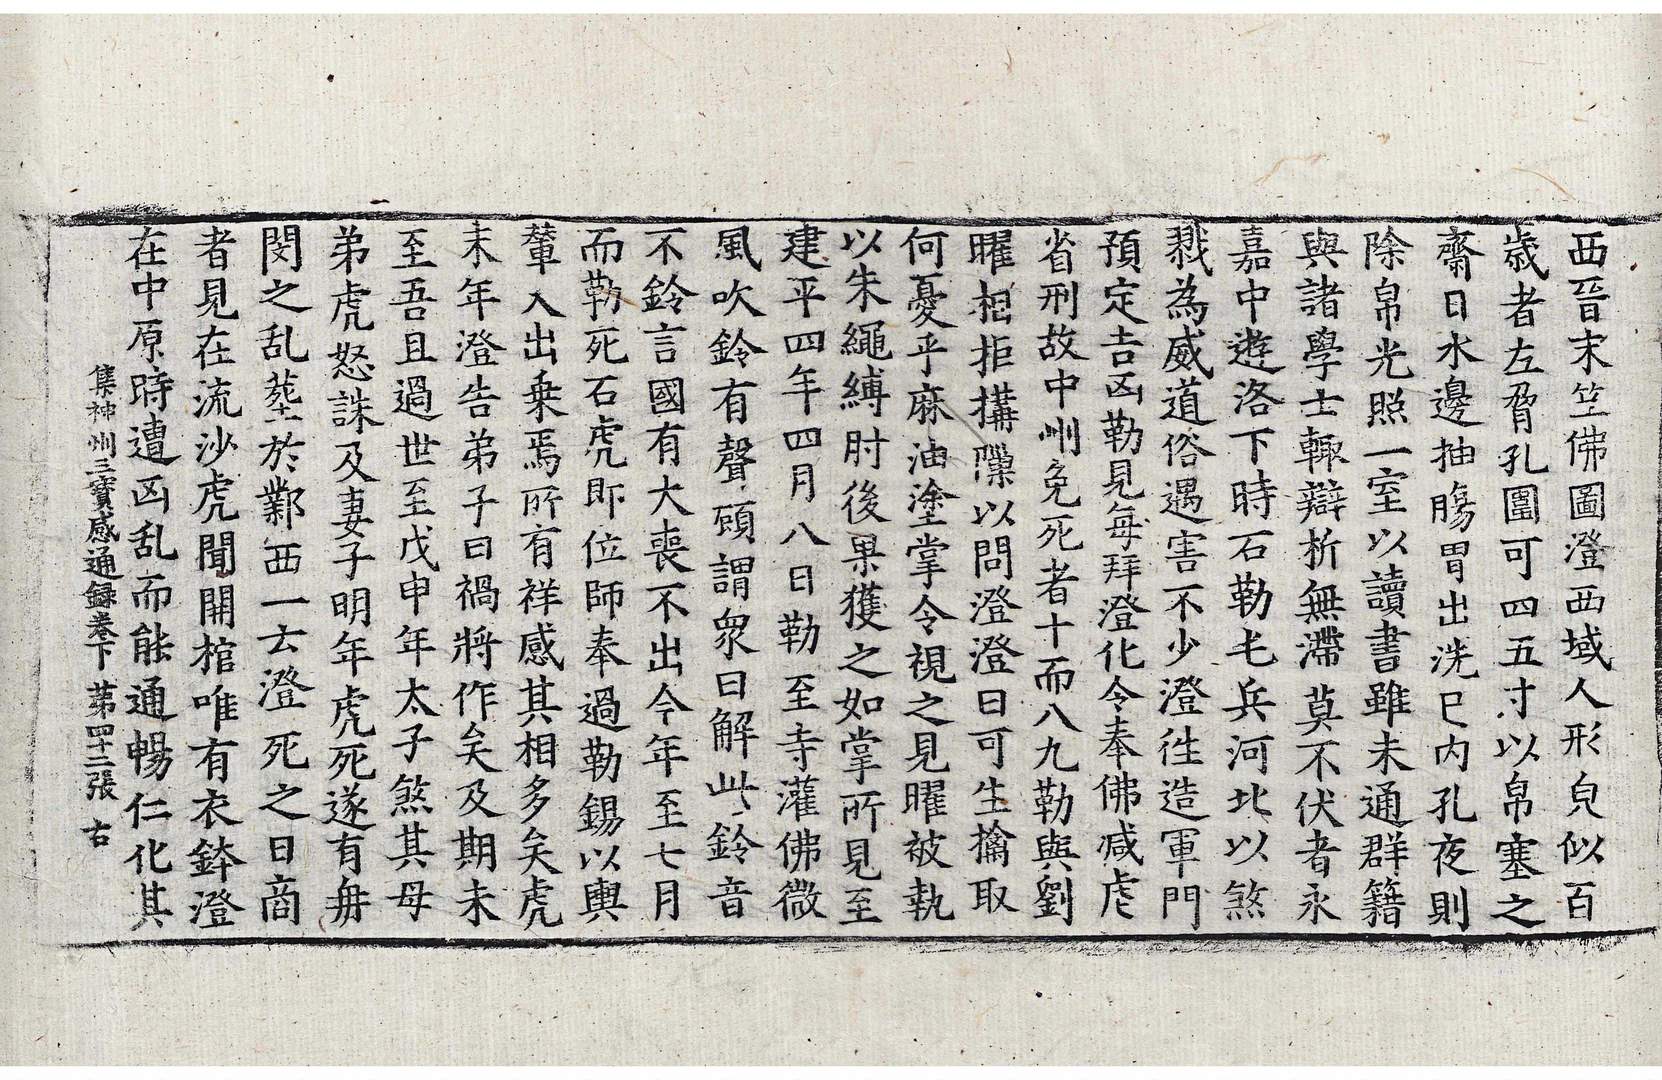 西晉末竺佛圖澄西域人形皃似百
歲者左脅孔圍可四五寸以帛塞之
齋日水邊抽腸胃出洗已内孔夜則
除帛光照一室以讀書雖未通群籍
與諸學士輙辯析無滯莫不伏者永
嘉中遊洛下時石勒屯兵河北以煞
戮為威道俗遇害不少澄往造軍門
預定吉凶勒見每拜澄化令奉佛减虐
省刑故中州免死者十而八九勒與劉
曜相拒搆隟以問澄澄曰可生擒取
何憂乎麻油塗掌令視之見曜被執
以朱繩縛肘後果獲之如掌所見至
建平四年四月八日勒至寺灌佛微
風吹鈴有聲頋謂衆曰解此鈴音
不鈴言國有大喪不出今年至七月
而勒死石虎即位師奉過勒錫以輿
輦入出乗焉所有祥感其相多矣虎
末年澄告弟子曰禍將作矣及期未
至吾且過世至戊申年太子煞其母
弟虎怒誅及妻子明年虎死遂有冉
閔之乱塟於鄴西一云澄死之日商
者見在流沙虎聞開棺唯有衣鉢澄
在中原時遭凶乱而能通暢仁化其
集神州三寳感通録卷下 第四十二張 古